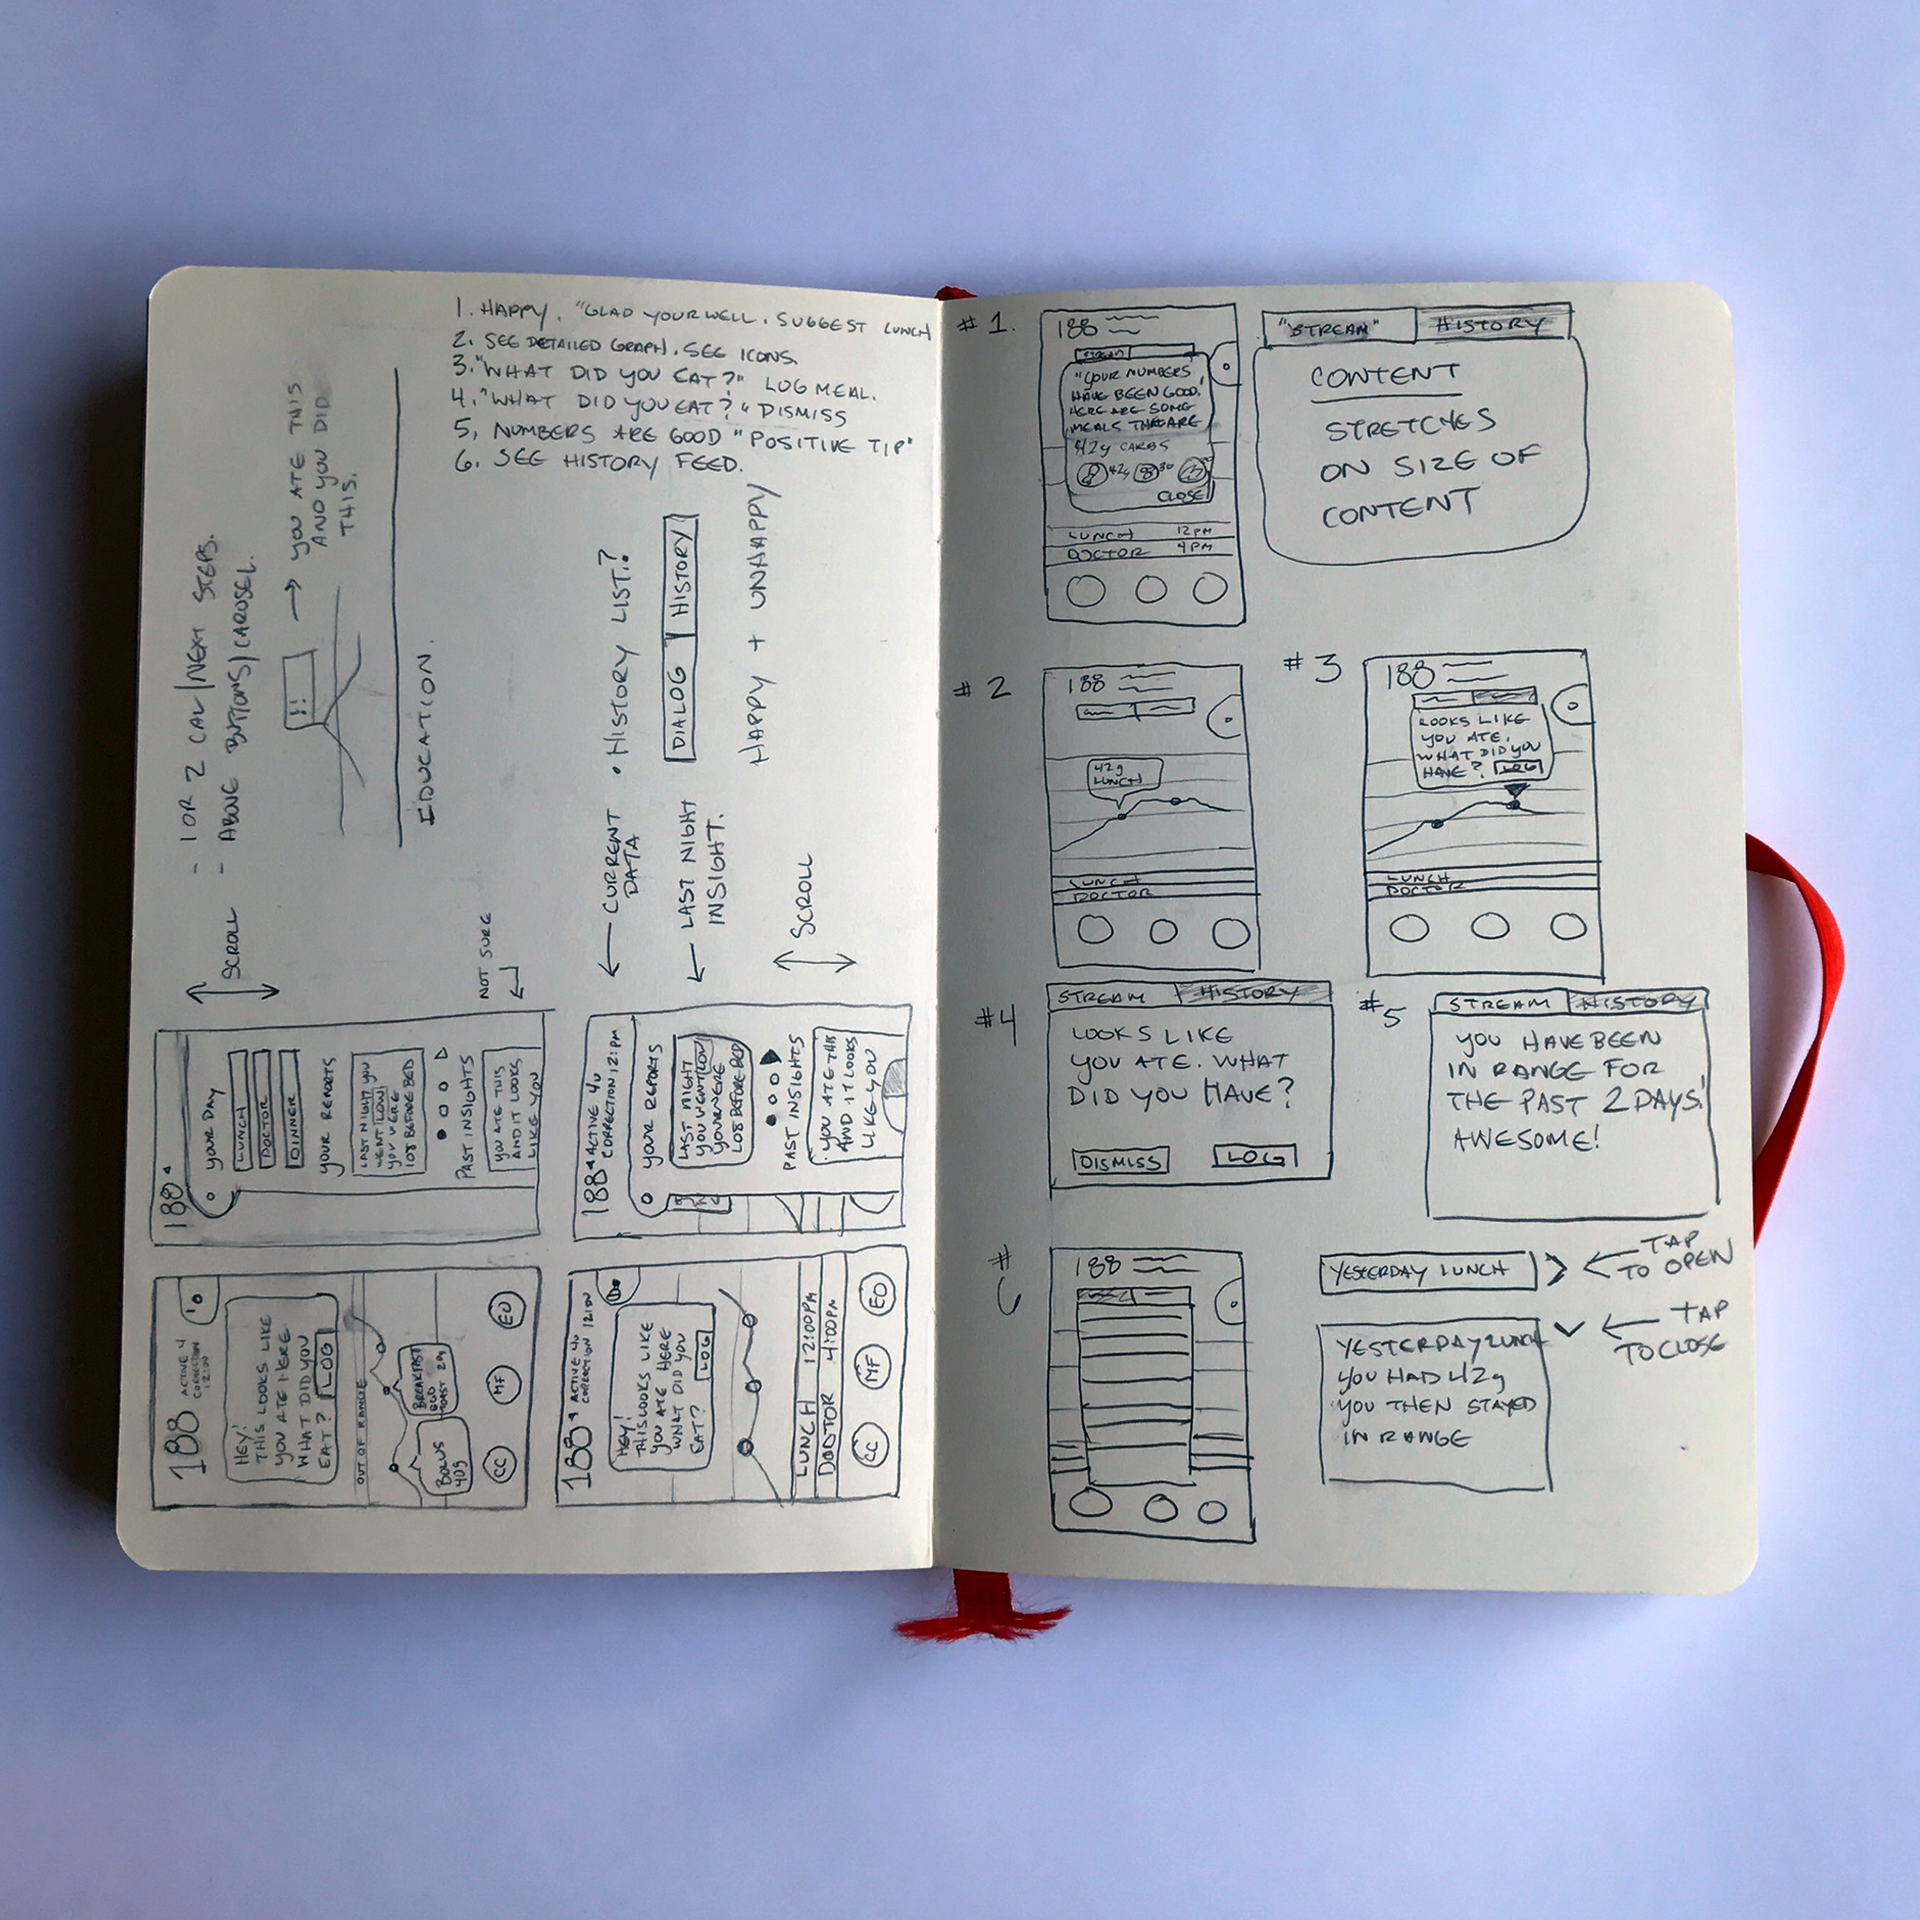 1. HAPPY. "GLAD YOUR WELL. SUGGEST LUNCH
2. SEE DETAILED GRAPH. SEE ICONS
3. "WHAT DID YOU EAT?" LOG MEAL.
4. "WHAT DID YOU EAT?" DISMISS
5, NUMBERS ARE GOOD "POSITIVE TIP"
6. SEE HISTORY FEED.
SCROLL
- 1 OR 2 CAL/NEXT STEPS.
- ABOVE BUTTONS/CAROSEL.
!!
YOU ATE THIS
AND YOU DID
THIS.
EDUCATION.
NOT SURE
CURRENT
DATA
• HISTORY LIST?
LAST NIGHT
INSIGHT.
DIALOG HISTORY
HAPPY + UNHAPPY
SCROLL
188
YOUR DAY
LUNCH
DOCTOR
DINNER
YOUR REPORTS
LAST NIGHT YOU
WENT LOW
YOU WERE
108 BEFORE BED
PAST INSIGHTS
YOU ATE THIS
AND IT LOOKS
LIKE YOU
188 ACTIVE 4U
CORRECTION 121PM
YOUR REPORTS
LAST NIGHT
YOU WENT LOW
YOU WERE
108 BEFORE BED
PAST INSIGHTS
YOU ATE THIS
AND IT LOOKS
LIKE YOU
188
ACTIVE 4
CORRECTION
HEY!
THIS LOOKS LIKE
YOU ATE HERE
WHAT DID YOU
EAT? LOG
OUT OF RANGE
BOLUS
40g
BREAKFAST
EGG
TOAST 29g
CC MF EO
188 ACTIVE 4U
CORRECTION
HEY!
THIS LOOKS LIKE
YOU ATE HERE
WHAT DID YOU
EAT? LOG
LUNCH 12:00PM
DOCTOR 4:00PM
CC MF EO
#1.
188
STREAM
"YOUR NUMBERS
HAVE BEEN GOOD!
HERE ARE SOME
MEALS THAT ARE
42g CARBS
42g 30
CLOSE
LUNCH 12PM
DOCTOR 4PM
"STREAM" HISTORY
CONTENT
STRETCHES
ON SIZE OF
CONTENT
#2
188
42g
LUNCH
LUNCH
DOCTOR
#3
188
LOOKS LIKE
YOU ATE.
WHAT DID YOU
HAVE? LOG
LUNCH
DOCTOR
#4
STREAM HISTORY
LOOKS LIKE
YOU ATE. WHAT
DID YOU HAVE?
DISMISS LOG
#5
STREAM HISTORY
YOU HAVE BEEN
IN RANGE FOR
THE PAST 2 DAYS!
AWESOME!
#
6
188
YESTERDAY LUNCH
TAP
TO OPEN
TAP
TO CLOSE
YESTERDAY LUNCH
YOU HAD 42g
YOU THEN STAYED
IN RANGE